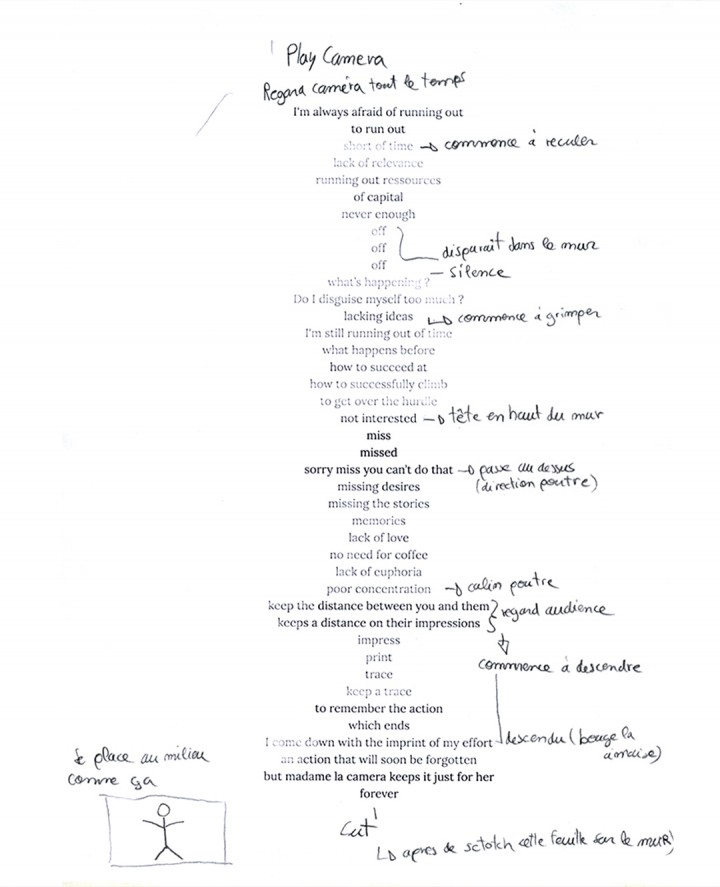 Play Camera
Regard caméra tout le temps
I'm always afraid of running out
to run out
short of time → commence à reculer
lack of relevance
running out ressources
of capital
never enough
off
off disparait dans le mur
off – silence
what's happening ?
Do I disguise myself too much ?
lacking ideas ↳ commence à grimper
I'm still running out of time
what happens before
how to succeed at
how to successfully climb
to get over the hurdle
not interested → tête en haut du mur
miss
missed
sorry miss you can't do that → passe au dessus
missing desires (direction poutre)
missing the stories
memories
lack of love
no need for coffee
lack of euphoria
poor concentration → calin poutre
keep the distance between you and them regard audience
keeps a distance on their impressions
impress
print
commence à descendre
trace
keep a trace
to remember the action
which ends
I come down with the imprint of my effort descendu (bouge la
an action that will soon be forgotten
but madame la camera keeps it just for her
forever
Se place au milieu
comme ça
Cut
↳ apres de sctotch cette feuille sur le mur